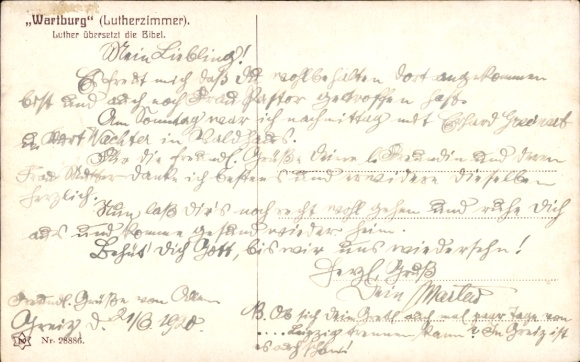 „Wartburg“ (Lutherzimmer).
Luther übersetzt die Bibel.
Mein Liebling!
Es freut mich daß Du wohlbehalten dort angekommen
bist und auch noch Frau Pastor getroffen hast.
Am Sonntag war ich nachmittag mit Erhard
in Waldhaus.
Für die freundl. Grüße Deiner l. Freundin und deren
Frau Mutter danke ich bestens und erwidere dieselben
herzlich.
Nun laß Dir's noch recht wohl gehen und ruhe Dich
aus und komme gesund wieder heim.
Behüt' Dich Gott, bis wir uns wiedersehn!
Herzl. Gruß
Dein
Freundl. Grüße von Allen
Greiz d. 21/8. 1920.
N.B. Ob sich Dein Greth auch mal paar Tage von
Leipzig trennen kann? In Greiz ist
es auch schön!
Nr. 28886.